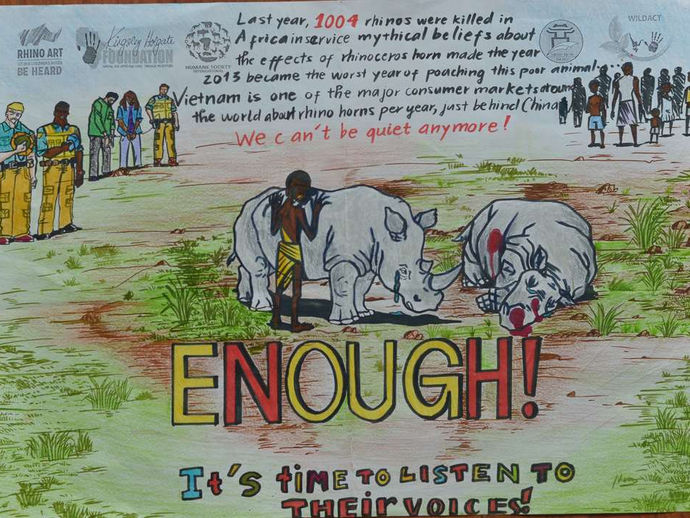 RHINO ART
BE HEARD
Kingsley Holgate
FOUNDATION
HUMANE SOCIETY
INTERNATIONAL
WILDACT
Last year, 1004 rhinos were killed in
Africa in service mythical beliefs about
the effects of rhinoceros horn made the year
2013 became the worst year of poaching this poor animal...
Vietnam is one of the major consumer markets around
the world about rhino horns per year, just behind China
We can't be quiet anymore!
ENOUGH!
It's time to listen to
their voices!